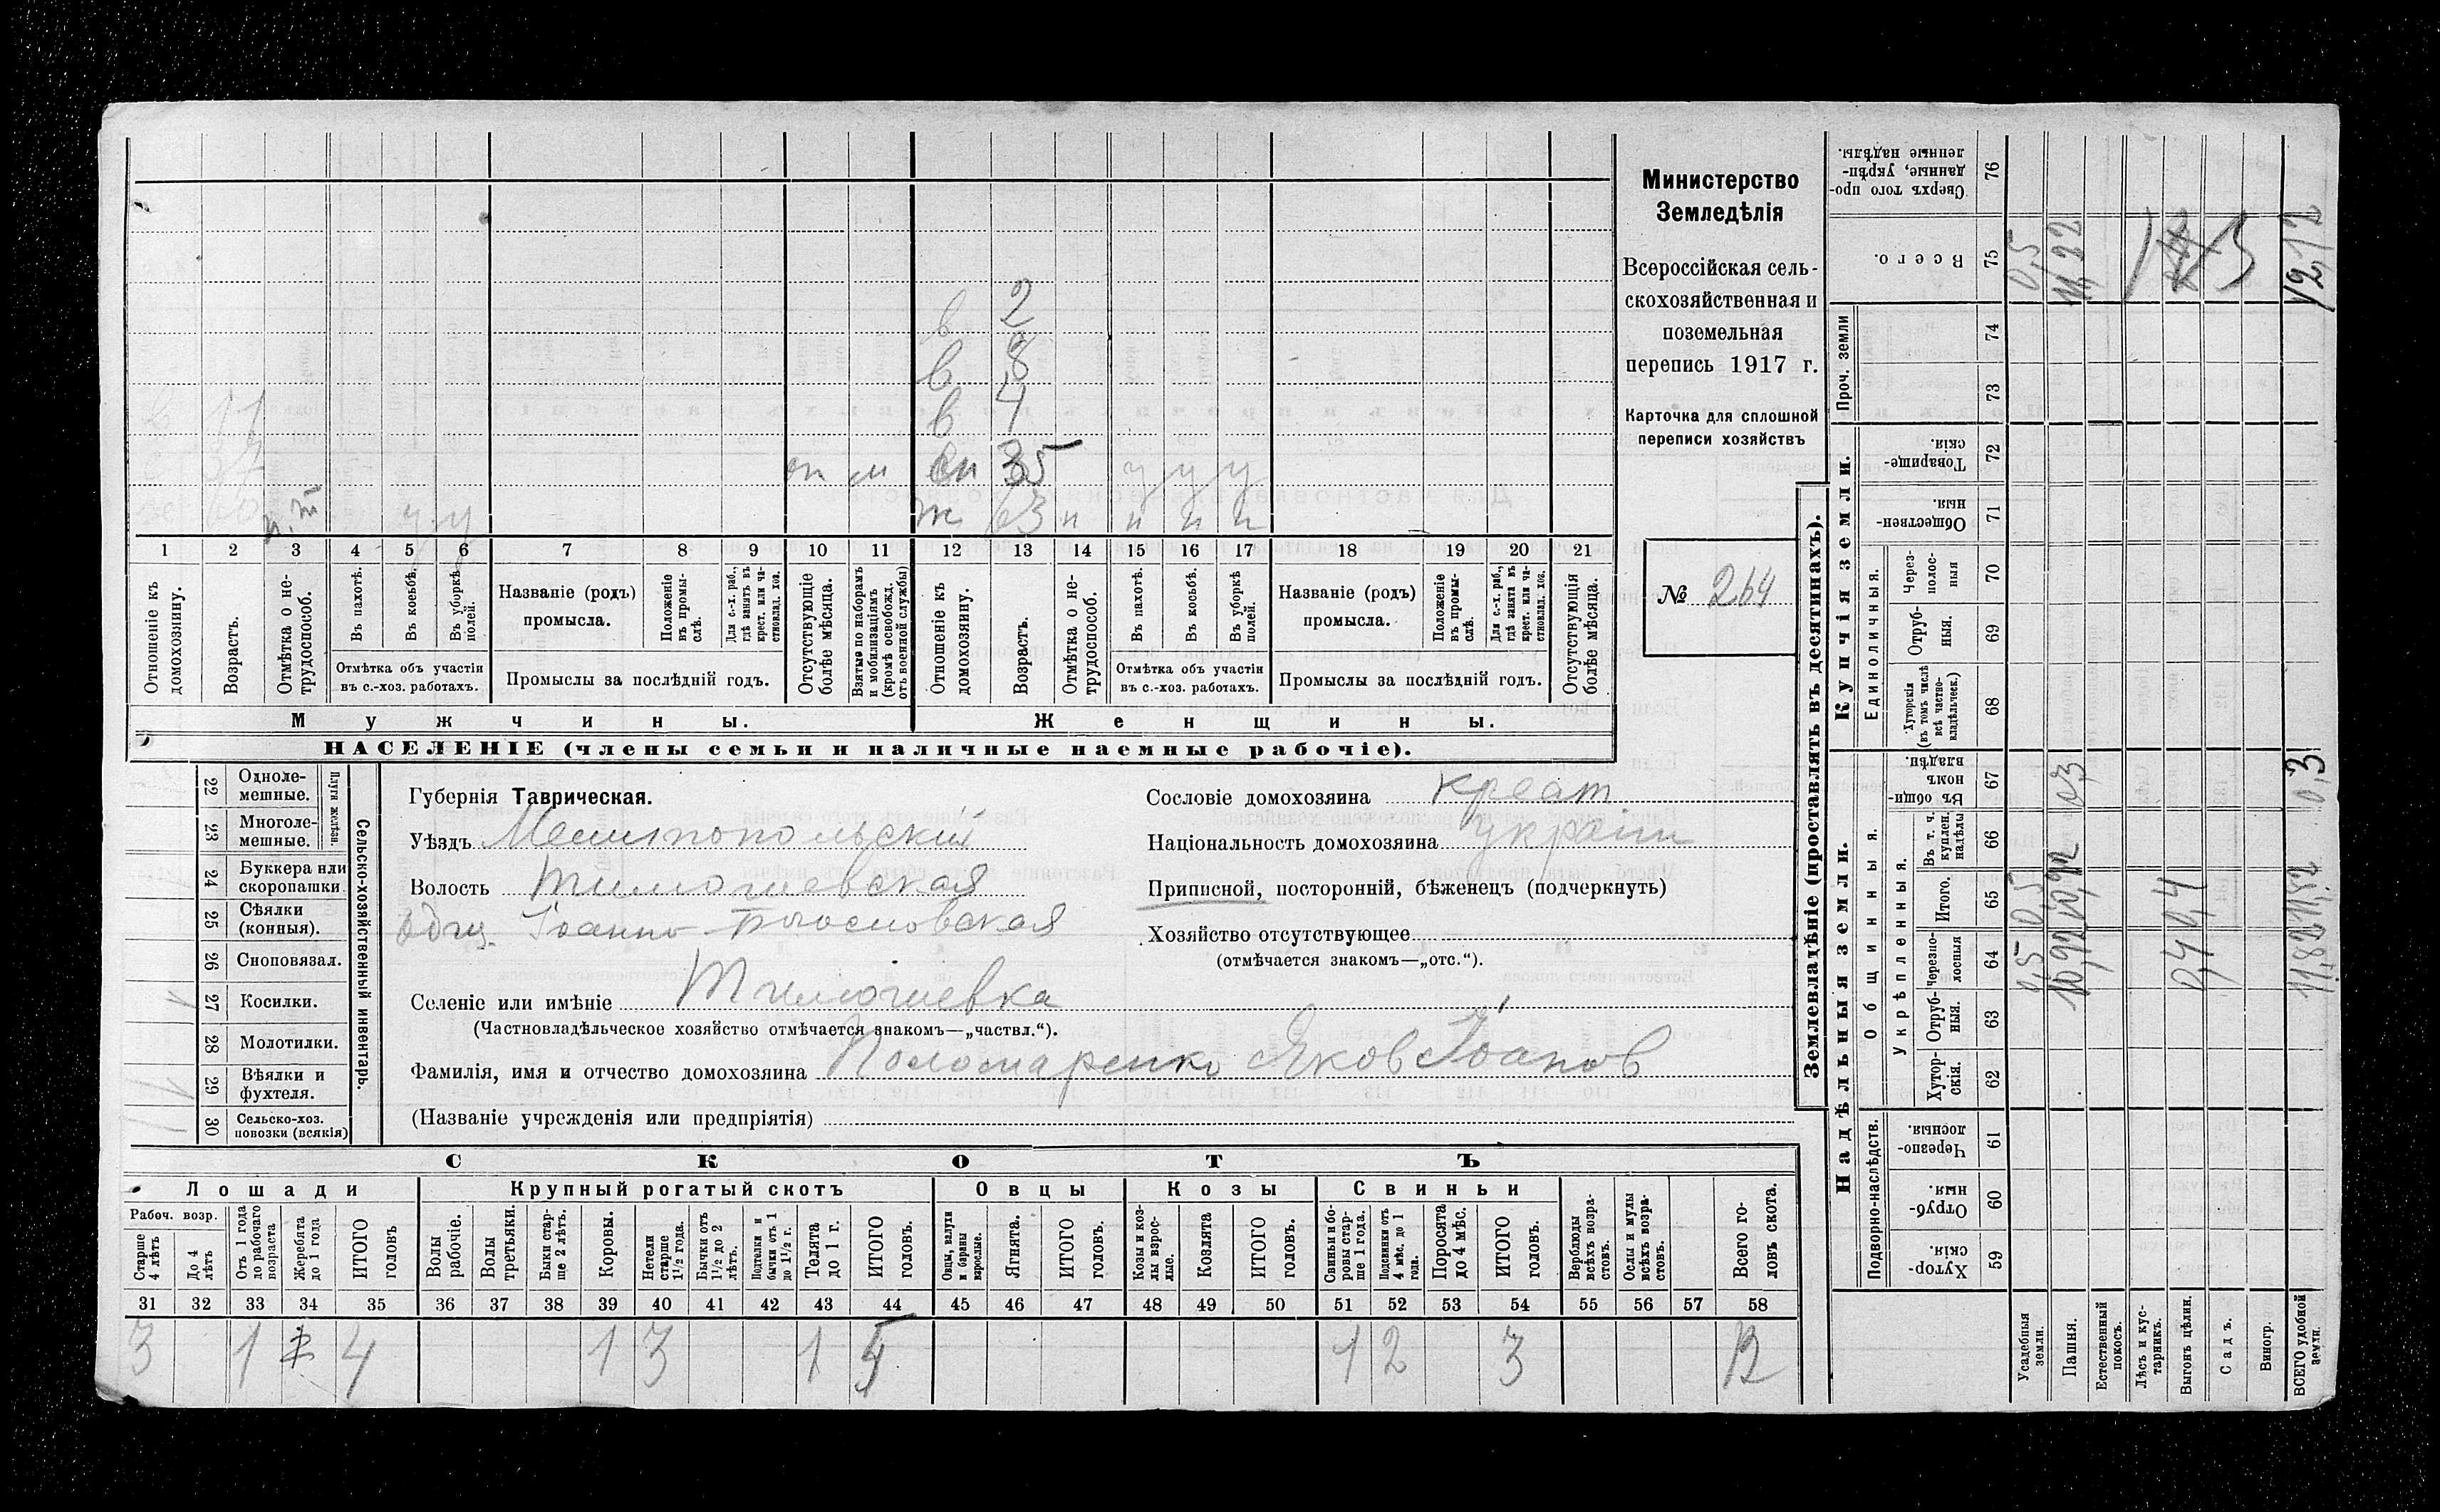 Министерство
Земледѣлія
Всероссійская сель-
скохозяйственная и
поземельная
перепись 1917 г.
Карточка для сплошной
переписи хозяйствъ
№ 264
в 2
в 8
в 4
11
сн 35 у у у
ж 63 н н н н
1 2 3 4 5 6 7 8 9 10 11 12 13 14 15 16 17 18 19 20 21
Отношеніе къ домохозяину.
Возрастъ.
Отмѣтка о не-трудоспособ.
Въ пахотѣ.
Въ косьбѣ.
Въ уборкѣ полей.
Отмѣтка объ участіи
въ с.-хоз. работахъ.
Названіе (родъ)
промысла.
Положеніе въ промы-слѣ.
Для с.-х. раб., гдѣ занятъ въ крест. или ча-стновлад. хоз.
Промыслы за послѣдній годъ.
Отсутствующіе болѣе мѣсяца.
Взятые по наборамъ и мобилизаціямъ (кромѣ освобожд. отъ военной службы)
Отношеніе къ домохозяину.
Возрастъ.
Отмѣтка о не-трудоспособ.
Въ пахотѣ.
Въ косьбѣ.
Въ уборкѣ полей.
Отмѣтка объ участіи
въ с.-хоз. работахъ.
Названіе (родъ)
промысла.
Положеніе въ промы-слѣ.
Для с.-х. раб., гдѣ занята въ крест. или ча-стновлад. хоз.
Промыслы за послѣдній годъ.
Отсутствующія болѣе мѣсяца.
Мужчины.
Женщины.
НАСЕЛЕНІЕ (члены семьи и наличные наемные рабочіе).
Сельско-хозяйственный инвентарь.
Плуги желѣзн.
22 Одноле-мешные.
23 Многоле-мешные.
24 Буккера или скоропашки
25 Сѣялки (конныя).
26 Сноповязал.
27 Косилки.
28 Молотилки.
29 Вѣялки и фухтеля.
30 Сельско-хоз. повозки (всякія)
Губернія Таврическая.
Уѣздъ Мелитопольскій
Волость Тимошевская
Іоанно-Богословская
Селеніе или имѣніе Тимошевка
(Частновладѣльческое хозяйство отмѣчается знакомъ—„частвл.“).
Фамилія, имя и отчество домохозяина Пономаренко Яков Іоанов
(Названіе учрежденія или предпріятія)
Сословіе домохозяина крест
Національность домохозяина украин
Приписной, посторонній, бѣженецъ (подчеркнуть)
Хозяйство отсутствующее
(отмѣчается знакомъ—„отс.“).
СКОТЪ
Лошади
Крупный рогатый скотъ
Овцы
Козы
Свиньи
Рабоч. возр.
Старше 4 лѣтъ
До 4 лѣтъ
Отъ 1 года до рабочаго возраста
Жеребята до 1 года
ИТОГО головъ
Волы рабочіе.
Волы третьяки.
Быки стар-ше 2 лѣтъ.
Коровы.
Нетели старше 1½ года.
Бычки отъ 1½ до 2 лѣтъ.
Подтелки и бычки отъ 1 до 1½ г.
Телята до 1 г.
ИТОГО головъ.
Овцы, валухи и бараны взрослые.
Ягнята.
ИТОГО головъ.
Козы и коз-лы взрос-лые.
Козлята
ИТОГО головъ.
Свиньи и бо-ровы стар-ше 1 года.
Подсвинки отъ 4 мѣс. до 1 года.
Поросята до 4 мѣс.
ИТОГО головъ.
Верблюды всѣхъ возра-стовъ.
Ослы и мулы всѣхъ возра-стовъ.
Всего го-ловъ скота.
31 32 33 34 35 36 37 38 39 40 41 42 43 44 45 46 47 48 49 50 51 52 53 54 55 56 57 58
3 1 4 1 3 1 5 1 2 3 12
Землевладѣніе (проставлять въ десятинахъ).
Надѣльныя земли.
Купчія земли.
Проч. земли
Подворно-наслѣдств.
Общинныя.
Укрѣпленныя.
Единоличныя.
59 Хутор-скія.
60 Отруб-ныя.
61 Черезпо-лосныя.
62 Хутор-скія.
63 Отруб-ныя.
64 Черезпо-лосныя
65 Итого.
66 Въ т. ч. куплен. надѣлы
67 Въ общи-номъ владѣн.
68 Хуторскія (въ томъ числѣ всѣ частно-владѣльческ.)
69 Отруб-ныя.
70 Через-полос-ныя
71 Обществен-ныя.
72 Товарище-скія.
73
74
75 Всего.
76 Сверхъ того про-данные, укрѣп-ленные надѣлы.
Усадебныя земли. 0,5 0,5 0,5
Пашня. 10,92 10,92 0,3 11,22
Естественный покосъ.
Лѣсъ и кус-тарникъ.
Выгонъ цѣлин. 0,4 0,4
Садъ.
Виногр.
ВСЕГО удобной земли. 11,82 11,82 0,3 12,12